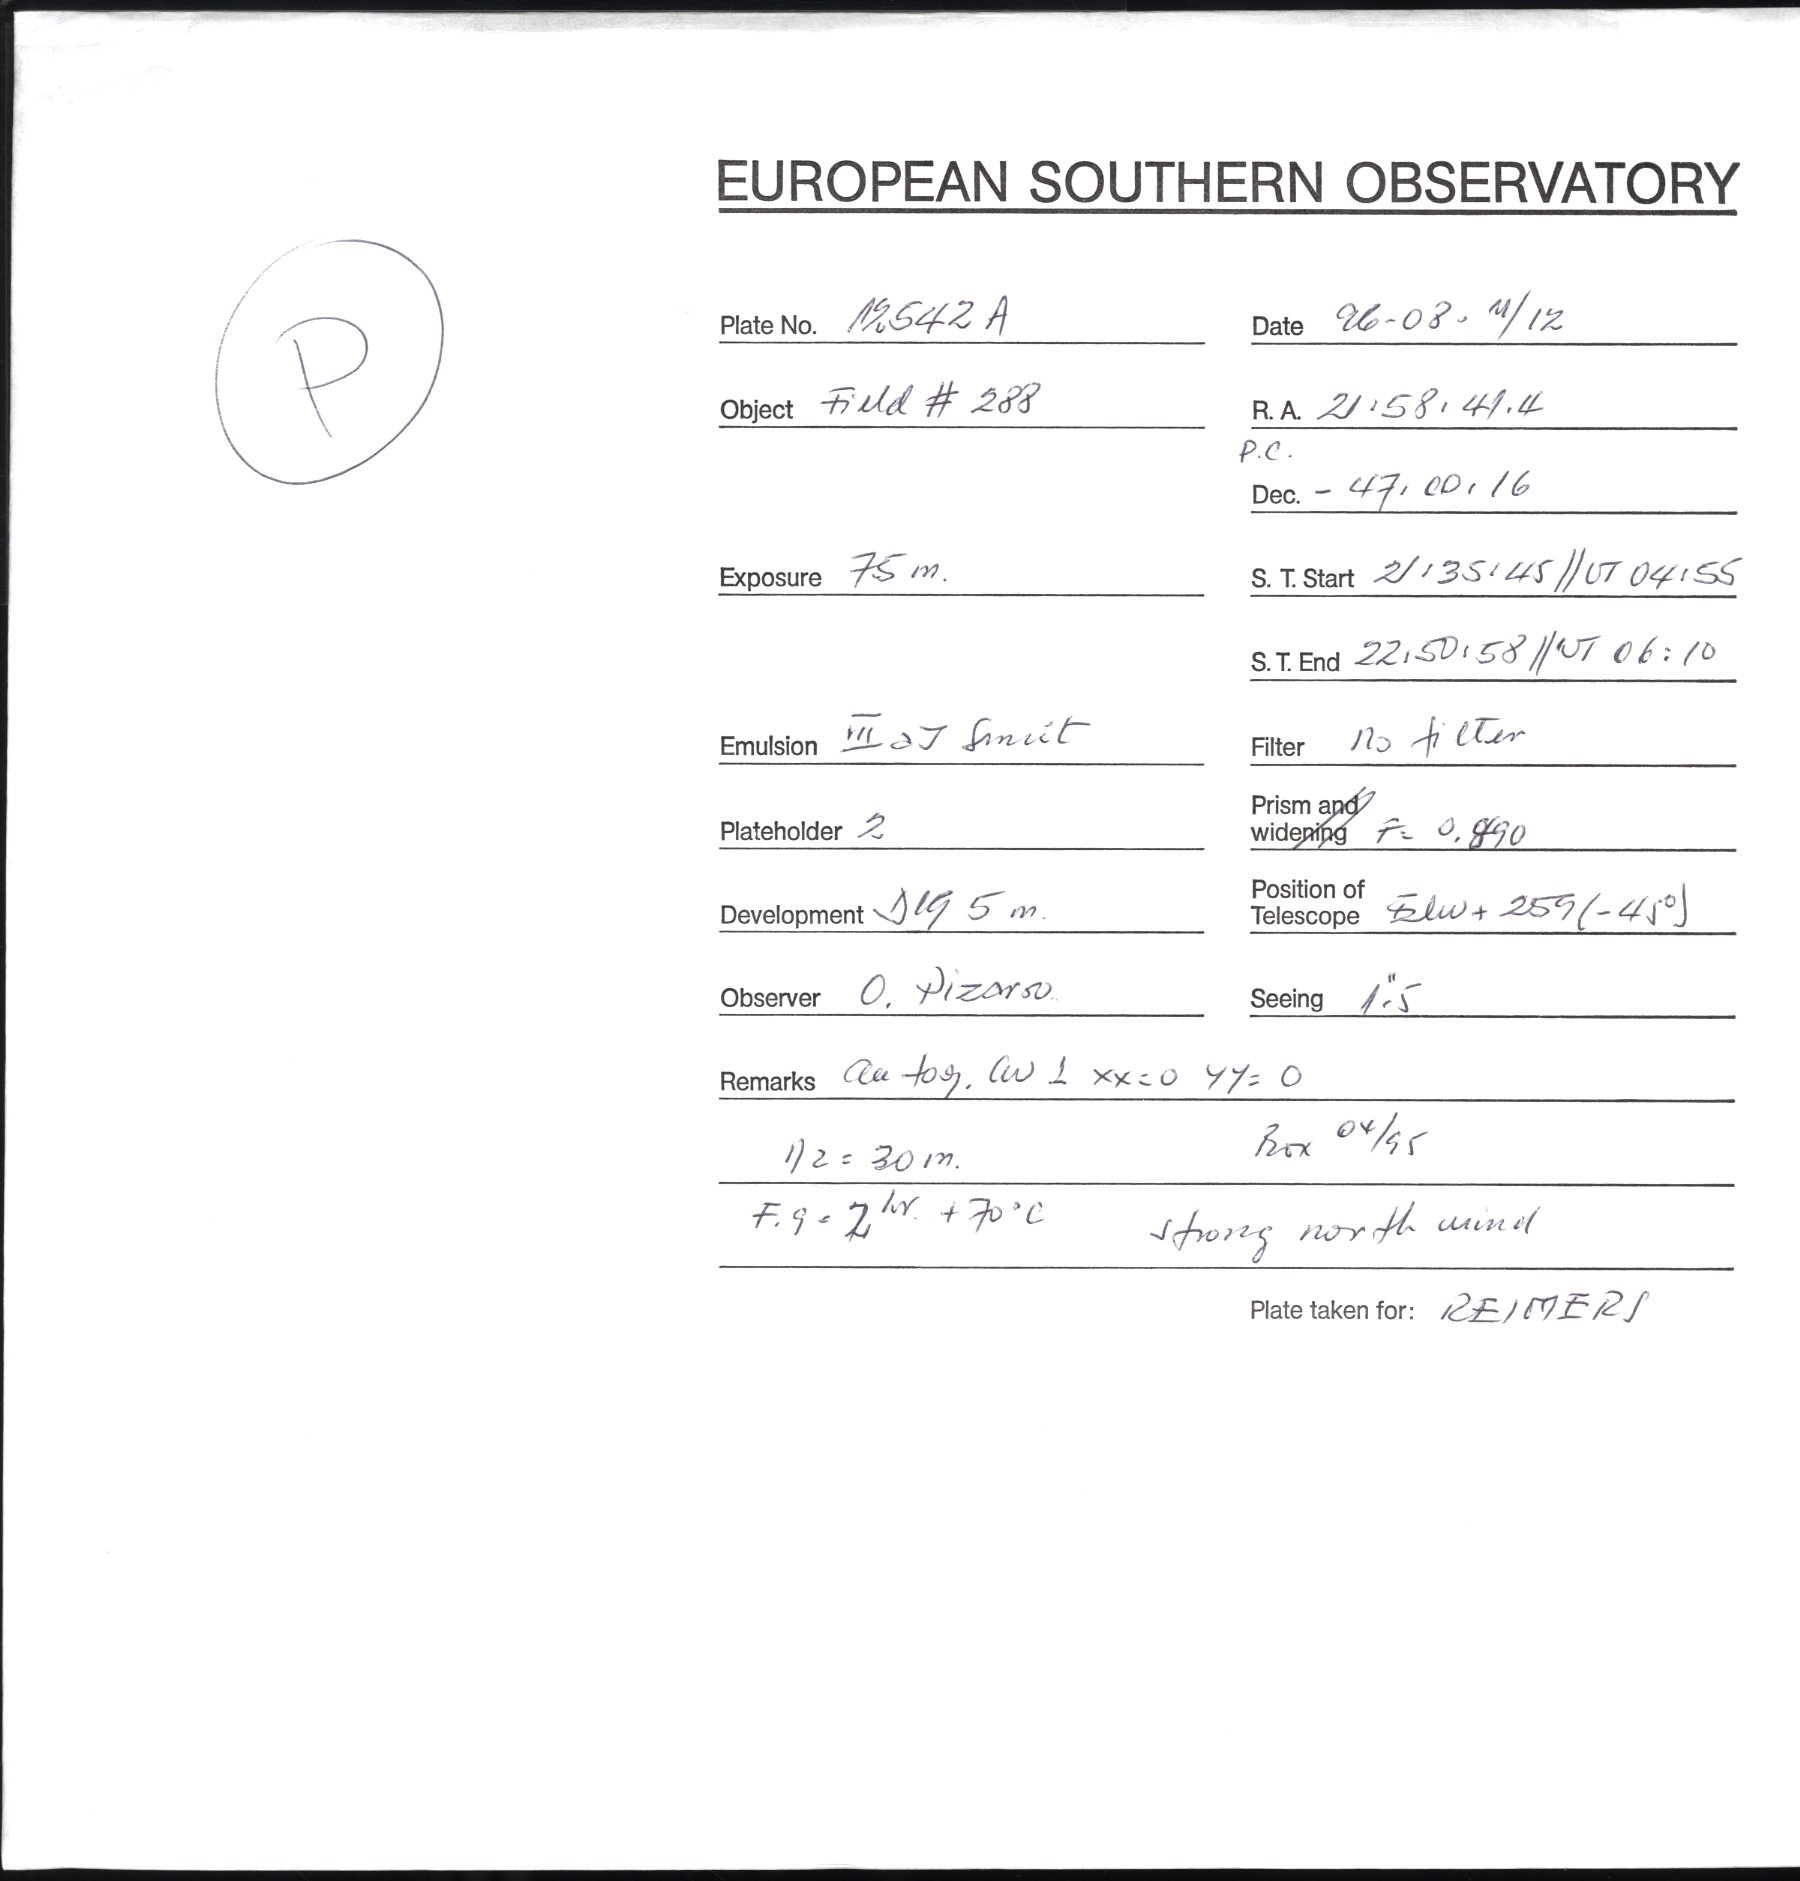 EUROPEAN SOUTHERN OBSERVATORY
P
Plate No. 12542 A
Date 96-08-11/12
Object Field # 288
R. A. 21:58:41.4
P.C.
Dec. - 47:00:16
Exposure 75 m.
S. T. Start 21:35:45//UT 04:55
S. T. End 22:50:58//UT 06:10
Emulsion III aJ
Filter No filter
Prism and widening F= 0.890
Plateholder 2
Development D19 5 m.
Position of Telescope + 259(-45°)
Observer O. Pizarro
Seeing 1".5
Remarks xx=0 YY=0
N2 = 30 m.
Box 04/95
F.g = 2hr. + 70°C
strong north wind
Plate taken for: REIMERS